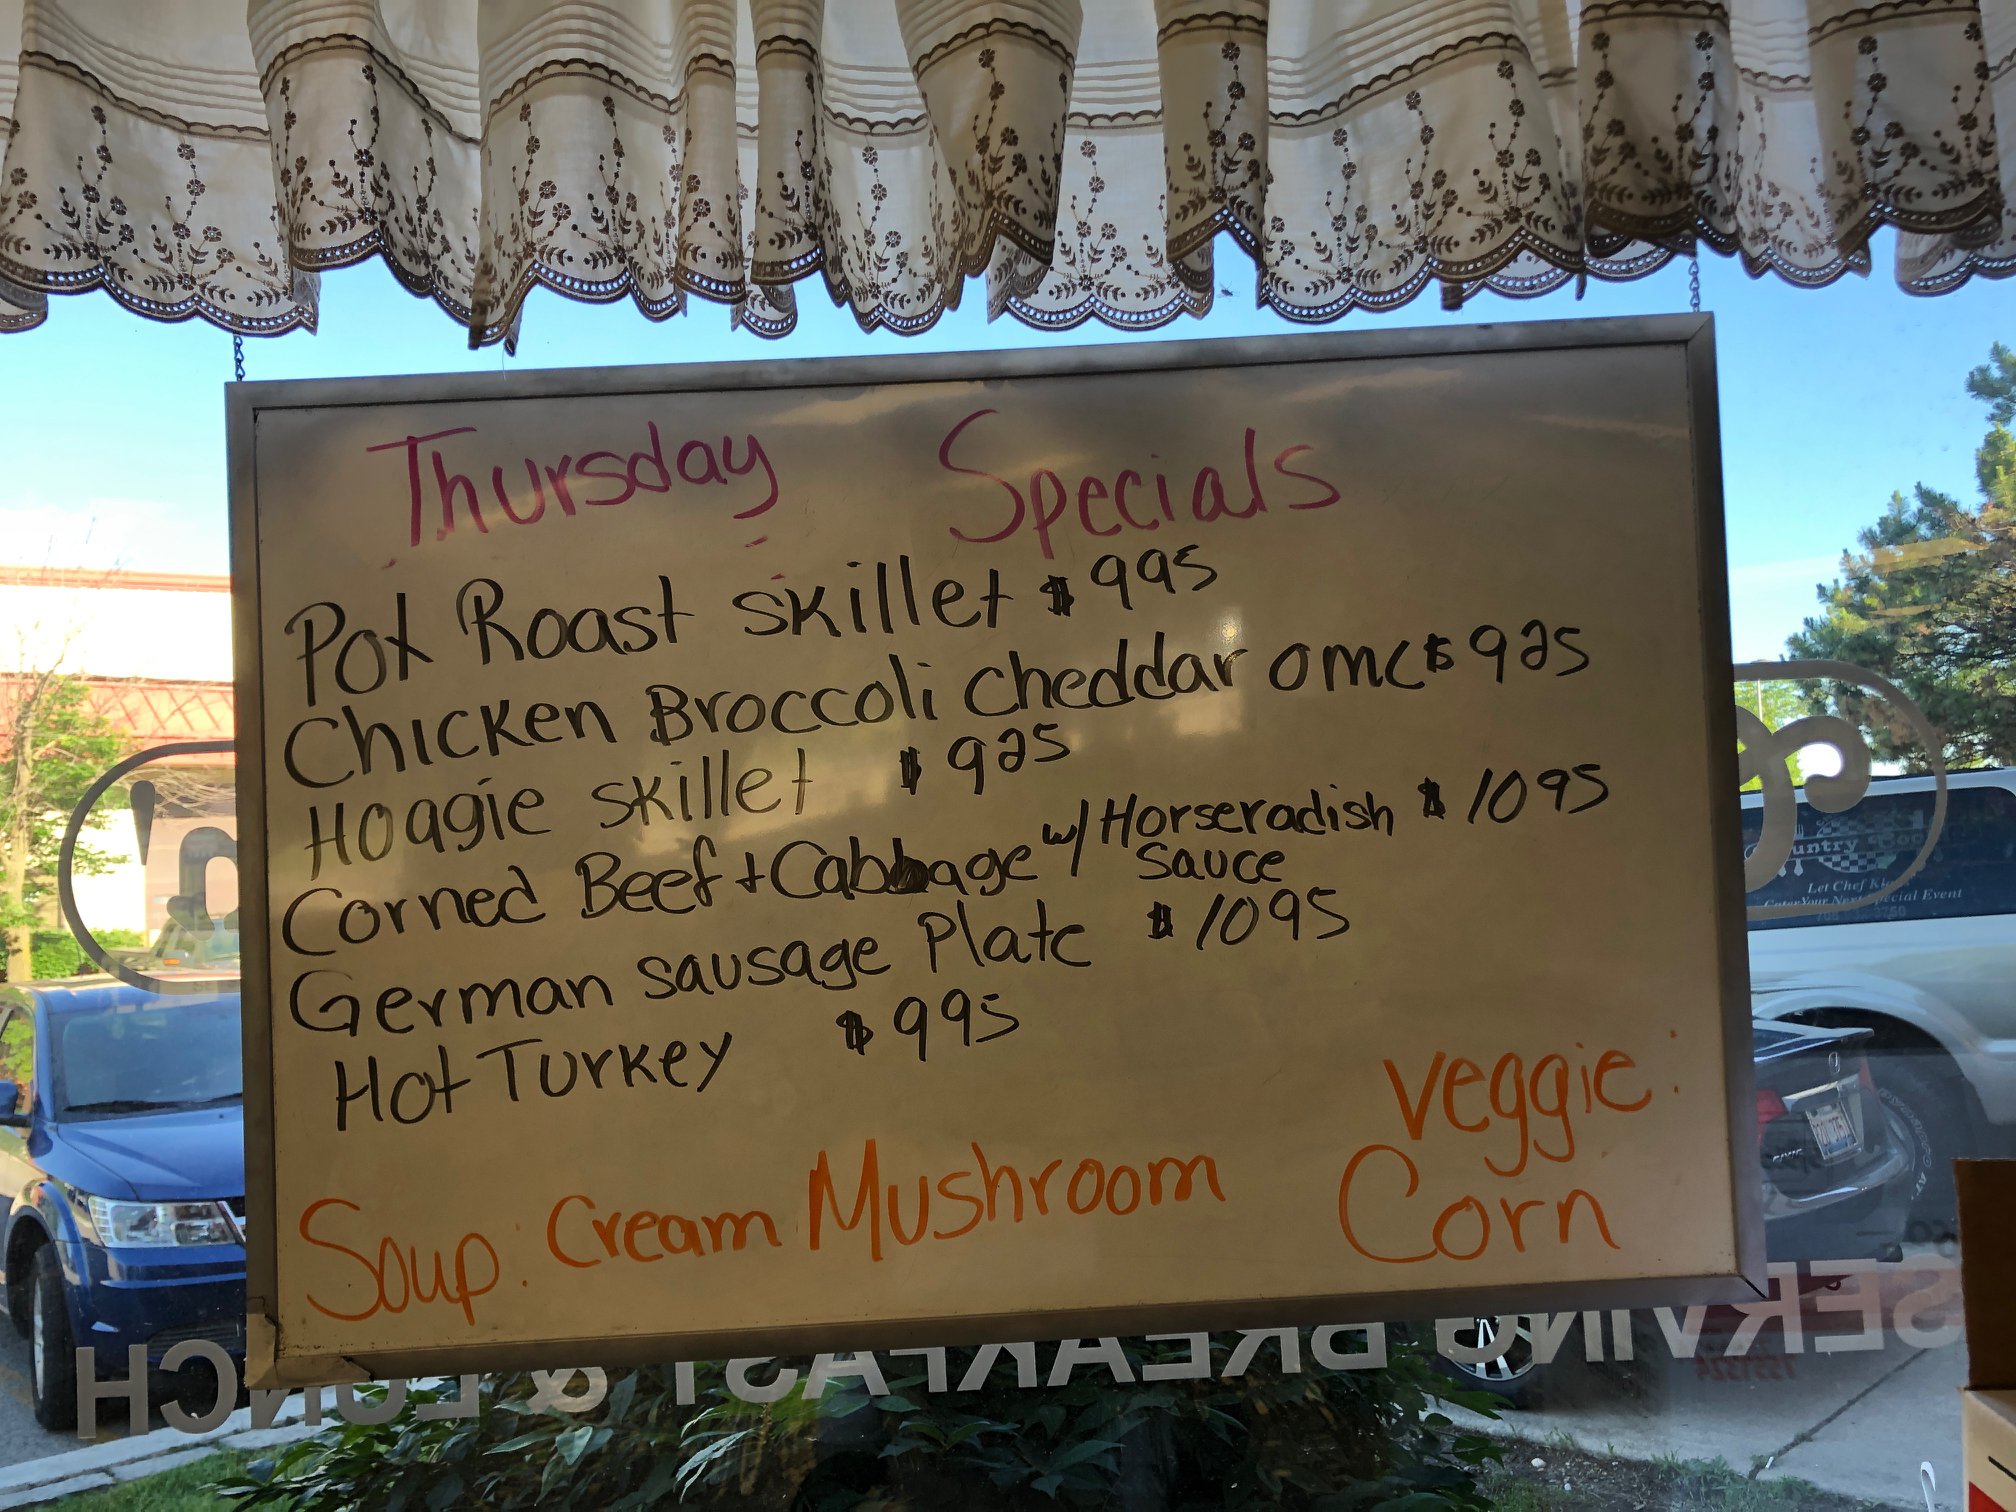 Thursday Specials
Pot Roast skillet $995
Chicken Broccoli Cheddar omc $925
Hoagie skillet $925
Corned Beef + Cabbage w/ Horseradish $1095
sauce
German sausage Plate $1095
Hot Turkey $995
Veggie:
Soup: Cream Mushroom Corn
SERVING BREAKFAST & LUNCH
Let Chef
Your Next Special Event